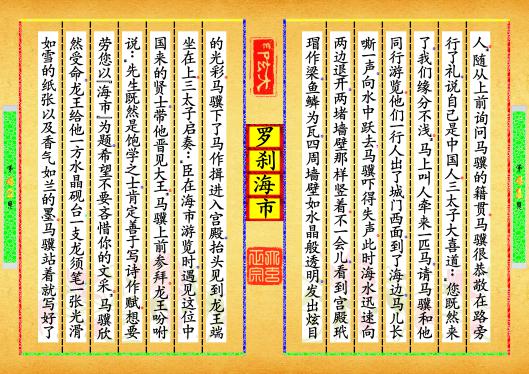 人,随从上前询问马骥的籍贯马骥很恭敬在路旁
行了礼说自己是中国人三太子大喜道:您既然来
了我们缘分不浅,马上叫人牵来一匹马请马骥和他
同行游览他们一行人出了城门西面到了海边马儿长
嘶一声向水中跃去马骥吓得失声此时海水迅速向
两边退开两堵墙壁那样竖着不一会儿看到宫殿玳
瑁作梁鱼鳞为瓦四周墙壁如水晶般透明发出炫目
罗刹海市
的光彩马骥下了马作揖进入宫殿抬头见到龙王端
坐在上三太子启奏:臣在海市游览时遇见这位中
国来的贤士带他晋见大王,马骥上前参拜龙王吩咐
说:先生既然是饱学之士肯定善于写诗作赋想要
劳您以「海市」为题希望不要吝惜你的文采,马骥欣
然受命龙王给他一方水晶砚台一支龙须笔一张光滑
如雪的纸张以及香气如兰的墨马骥站着就写好了